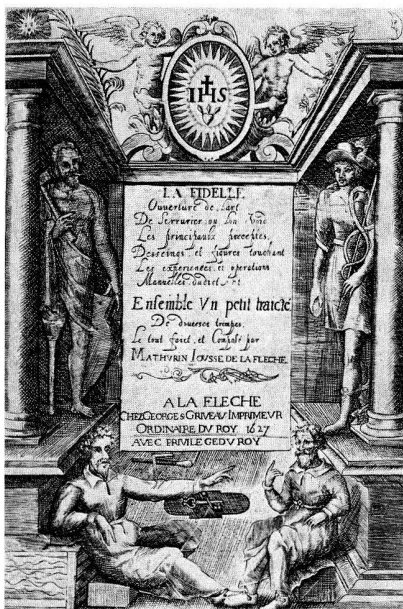 IHS
LA FIDELLE
Ouverture de l'art
De Serrurier, ou Lon Void
Les principaulx preceptes,
Desseings, et figures touchant
Les experiences, et operations
Manuelles dudict Art
Ensemble Vn petit traicté
De diverses trempes,
Le tout faict, et Composé par
MATHVRIN IOVSSE DE LA FLECHE
A LA FLECHE
CHEZ GEORGES GRIVEAU IMPRIMEVR
ORDINAIRE DV ROY 1627
AVEC PRIVILEGE DV ROY